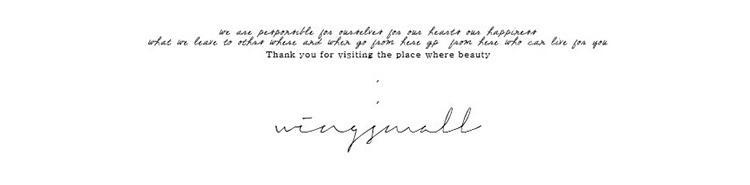 we are responsible for ourselves for our hearts our happiness
what we leave to othrs where and when go from here go from here who can live for you
Thank you for visiting the place where beauty
wingsmall